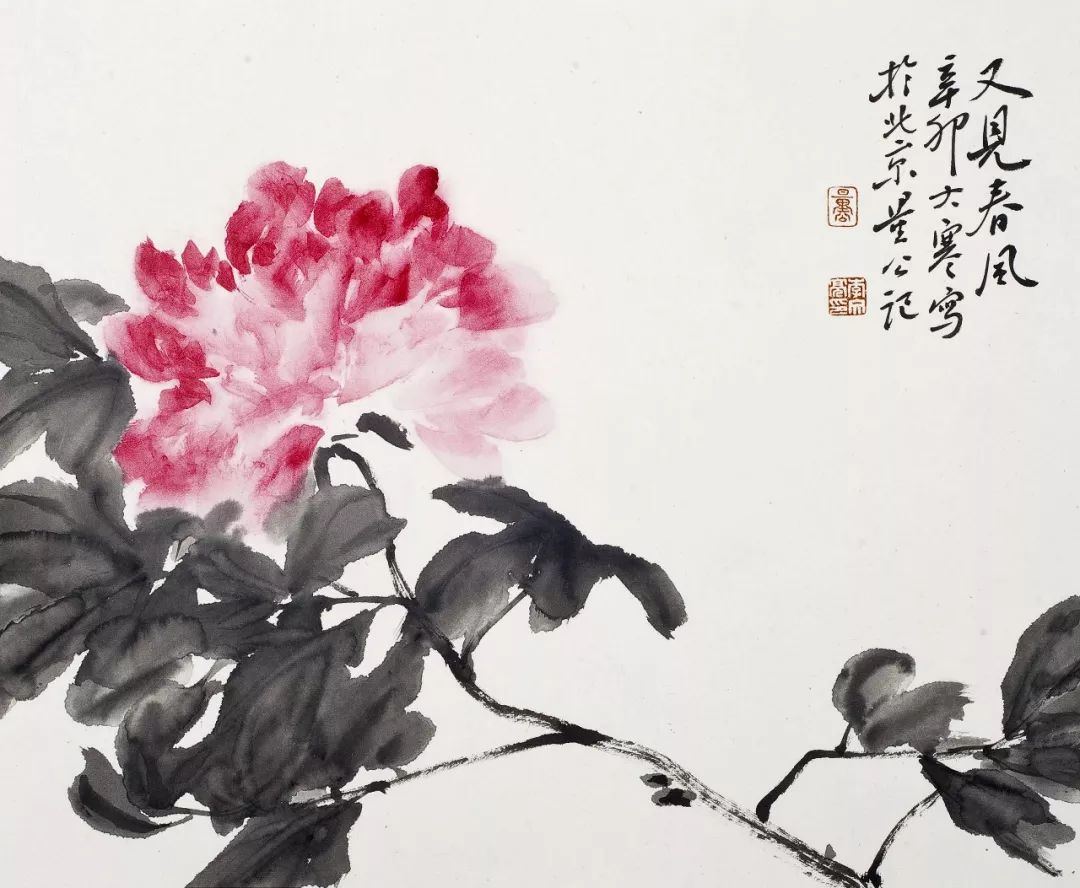 又見春風
辛卯大寒寫
於北京公記